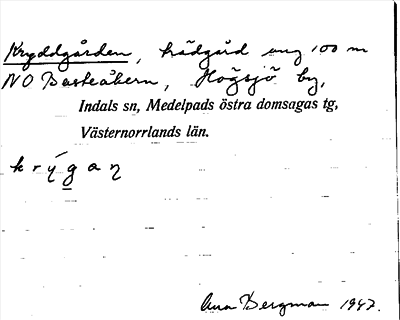 Kryddgården, trädgård ung 100 m
NO Basteåkern, Högsjö by,
Indals sn, Medelpads östra domsagas tg,
Västernorrlands län.
krýgaŋ
Ana Bergman 1947.